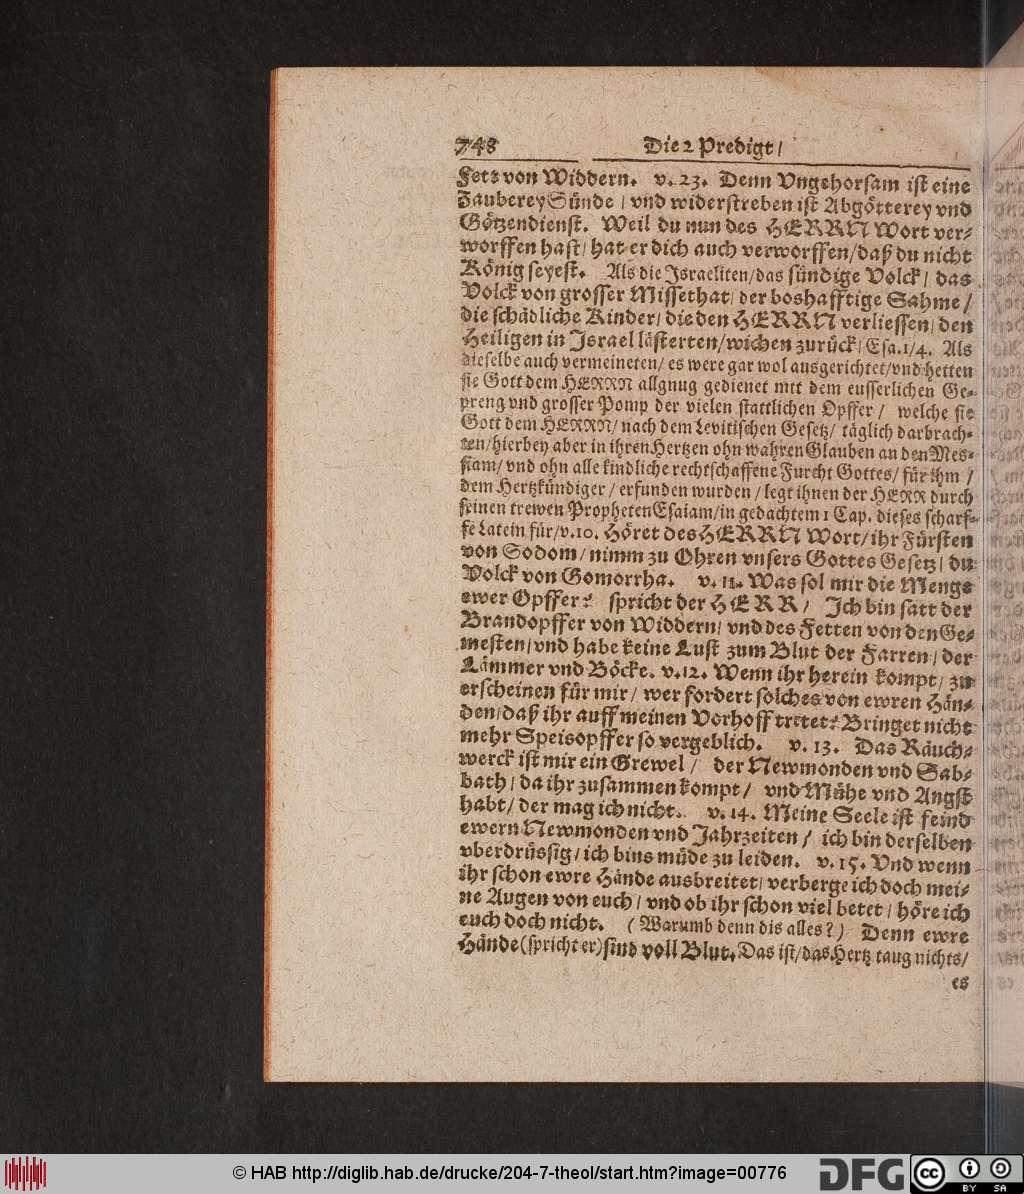 748 Die 2 Predigt /
Fett von Widdern. v. 23. Denn Vngehorsam ist eine
Zauberey Sünde / vnd widerstreben ist Abgötterey vnd
Götzendienst. Weil du nun des HERRN Wort ver-
worffen hast / hat er dich auch verworffen / daß du nicht
König seyest. Als die Israeliten / das sündige Volck / das
Volck von grosser Missethat / der boshafftige Sahme /
die schädliche Kinder / die den HERRN verliessen / den
Heiligen in Israel lästerten / wichen zurück / Esa. 1 / 4. Als
dieselbe auch vermeineten / es were gar wol ausgerichtet / vnd hetten
sie Gott dem HERRN allgnug gedienet mit dem eusserlichen Ge-
preng vnd grosser Pomp der vielen stattlichen Opffer / welche sie
Gott dem HERRN / nach dem Levitischen Gesetz / täglich darbrach-
ten / hierbey aber in ihren Hertzen ohn wahren Glauben an den Mes-
siam / vnd ohn alle kindliche rechtschaffene Furcht Gottes / für ihm /
dem Hertzkündiger / erfunden wurden / legt ihnen der HERR durch
seinen trewen Propheten Esaiam / in gedachtem 1 Cap. dieses scharf-
fe Latein für / v. 10. Höret des HERRN Wort / ihr Fürsten
von Sodom / nimm zu Ohren vnsers Gottes Gesetz / du
Volck von Gomorrha. v. 11. Was sol mir die Menge
ewer Opffer? spricht der HERR / Ich bin satt der
Brandopffer von Widdern / vnd des Fetten von den Ge-
mesten / vnd habe keine Lust zum Blut der Farren / der
Lämmer vnd Böcke. v. 12. Wenn ihr herein kompt / zu
erscheinen für mir / wer fordert solches von ewren Hän-
den / daß ihr auff meinen Vorhoff tretet? Bringet nicht
mehr Speisopffer so vergeblich. v. 13. Das Räuch-
werck ist mir ein Grewel / der Newmonden vnd Sab-
bath / da ihr zusammen kompt / vnd Mühe vnd Angst
habt / der mag ich nicht. v. 14. Meine Seele ist feind
ewern Newmonden vnd Jahrzeiten / ich bin derselben
vberdrüssig / ich bins müde zu leiden. v. 15. Vnd wenn
ihr schon ewre Hände ausbreitet / verberge ich doch mei-
ne Augen von euch / vnd ob ihr schon viel betet / höre ich
euch doch nicht. (Warumb denn dis alles?) Denn ewre
Hände (spricht er) sind voll Blut. Das ist / das Hertz taug nichts /
es
© HAB http://diglib.hab.de/drucke/204-7-theol/start.htm?image=00776
DFG
cc BY SA